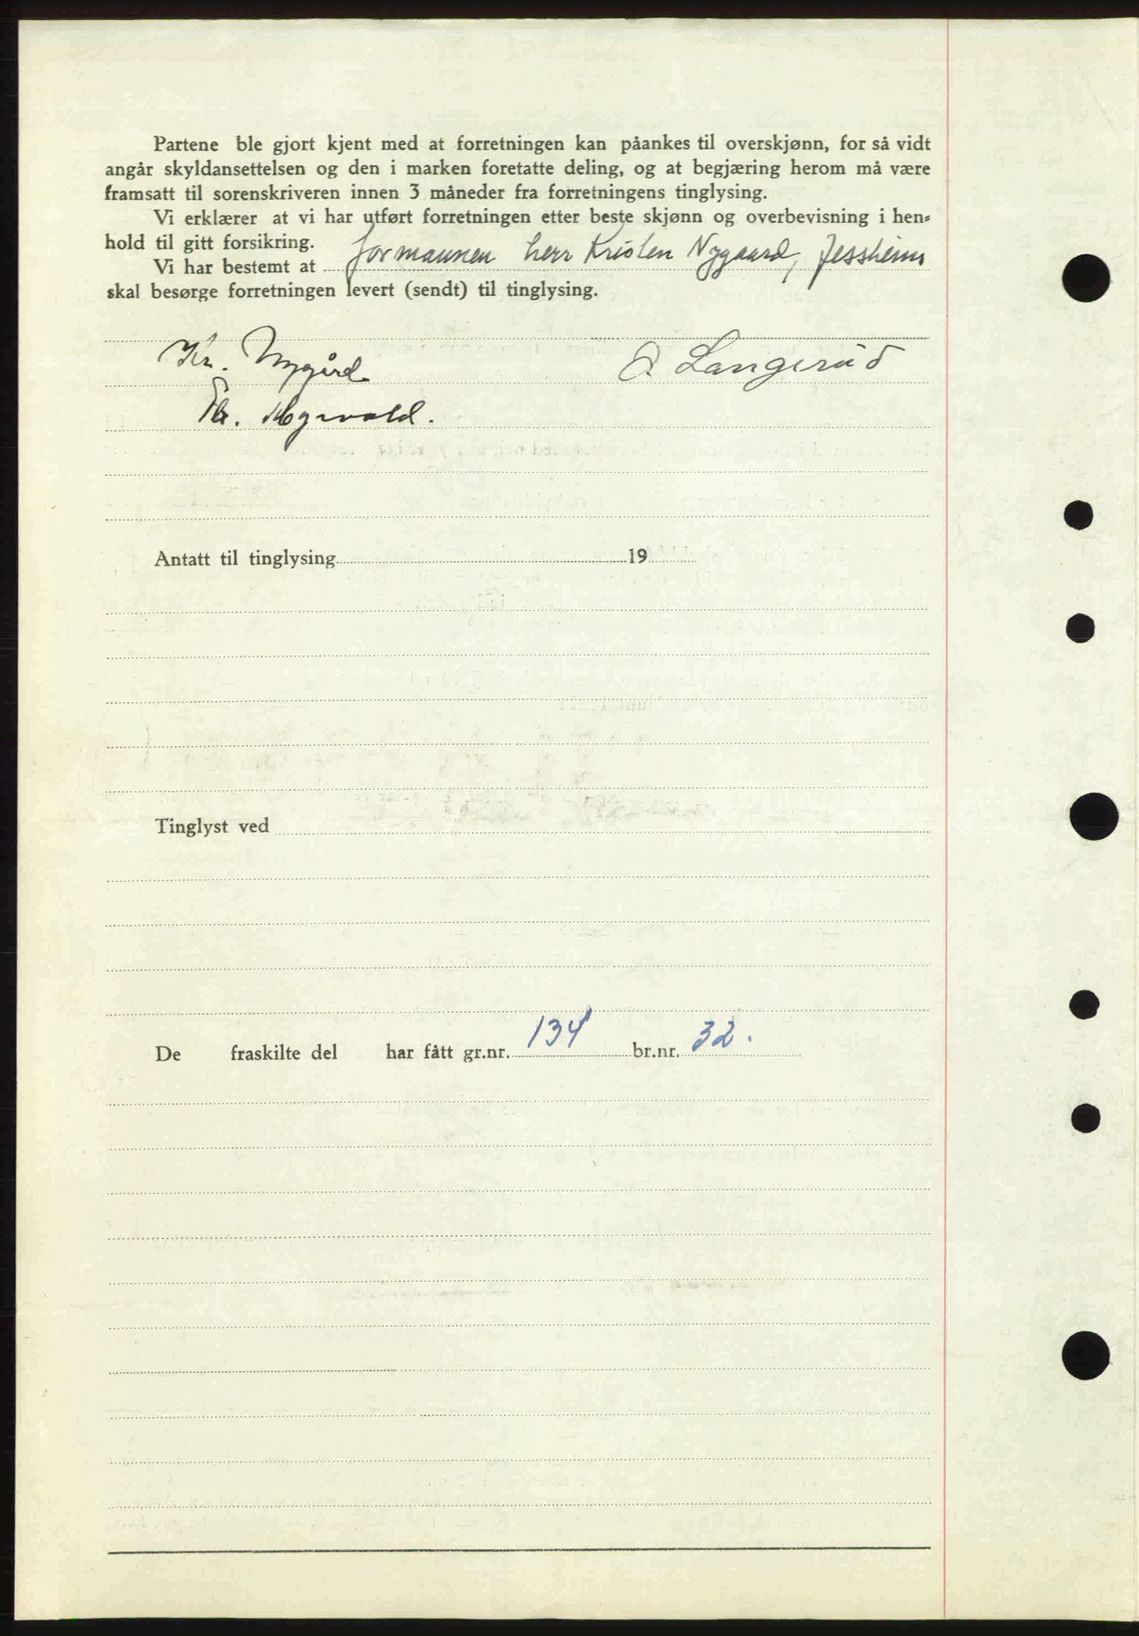 Partene ble gjort kjent med at forretningen kan påankes til overskjønn, for så vidt
angår skyldansettelsen og den i marken foretatte deling, og at begjæring herom må være
framsatt til sorenskriveren innen 3 måneder fra forretningens tinglysing.
Vi erklærer at vi har utført forretningen etter beste skjønn og overbevisning i hen-
hold til gitt forsikring.
Vi har bestemt at formannen herr Kristen Nygaard, Jessheim
skal besørge forretningen levert (sendt) til tinglysing.
Kr. Nygård O. Langerud
Antatt til tinglysing 19
Tinglyst ved
De fraskilte del har fått gr.nr. 134 br.nr. 32.